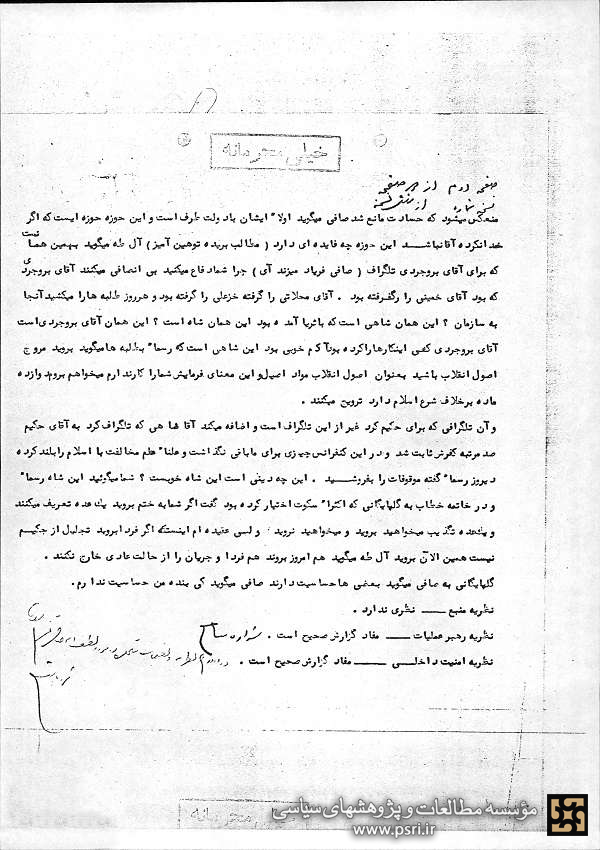 خیلی محرمانه
صفحه دوم از
منعکس میشود که حسادت مانع شد صافی میگوید اولا" ایشان باد ولت طرف است و این حوزه حوزه ایست که اگر
خدانکرده آقانباشد این حوزه چه فایده ای دارد ( مطالب بریده توهین آمیز ) آل طه میگوید بهمین شما نیست
که برای آقای بروجردی تلگراف ( صافی فریاد میزند آی ) چرا شمادفاع میکنید بی انصافی میکنند آقای بروجردی
که بود آقای خمینی را رگفرفته بود . آقای محلاتی را گرفته خزعلی را گرفته بود و هرروز طلبه هارا میکشید آنجا
به سازمان ؟ این همان شاهی است که باثریا آمده بود این همان شاه است ؟ این همان آقای بروجردی است
آقای بروجردی کی اینکارهاراکرده بود آدم خوبی بود این شاهی است که رسما" بطلبه هامیگوید بروید مروج
اصول انقلاب باشید بعنوان اصول انقلاب مواد اصیل و این معنای فرمایش شمارا کاردارم میخواهم بروم دوازده
ماده برخلاف شرع اسلام دارد ترویج میکنند .
و آن تلگرافی که برای حکیم کرد غیر از این تلگراف است و اضافه میکند آقا شاهی که تلگراف کرد به آقای حکیم
صد مرتبه کفرش ثابت شد و در این کنفرانس چیزی برای مابانی نگذاشت و علنا" علم مخالفت با اسلام رابلند کرده
دیروز رسما" گفته موقوفات را بفروشید . این چه دینی است این شاه خوبست ؟ شمامیگوئید این شاه رسما"
و در خاتمه خطاب به گلپایگانی که اکثرا" سکوت اختیار کرده بود گفت اگر شمابه ختم بروید یک عده تعریف میکنند
و یکعده تکذیب میخواهید بروید و میخواهید نروید ولی عقیده ام اینستکه اگر فردا بروید تجلیل از حکیم
نیست همین الآن بروید آل طه میگوید هم امروز بروند هم فردا و جریان را از حالت عادی خارج نکنند .
گلپایگانی به صافی میگوید بعضی ها حساسیت دارند صافی میگوید کی بنده من حساسیت ندارم .
نظریه منبع ــ نظری ندارد .
نظریه رهبر عملیات ــ مفاد گزارش صحیح است .
نظریه امنیت داخلی ــ مفاد گزارش صحیح است .
مؤسسه مطالعات و پژوهشهای سیاسی
www.psri.ir
محرمانه